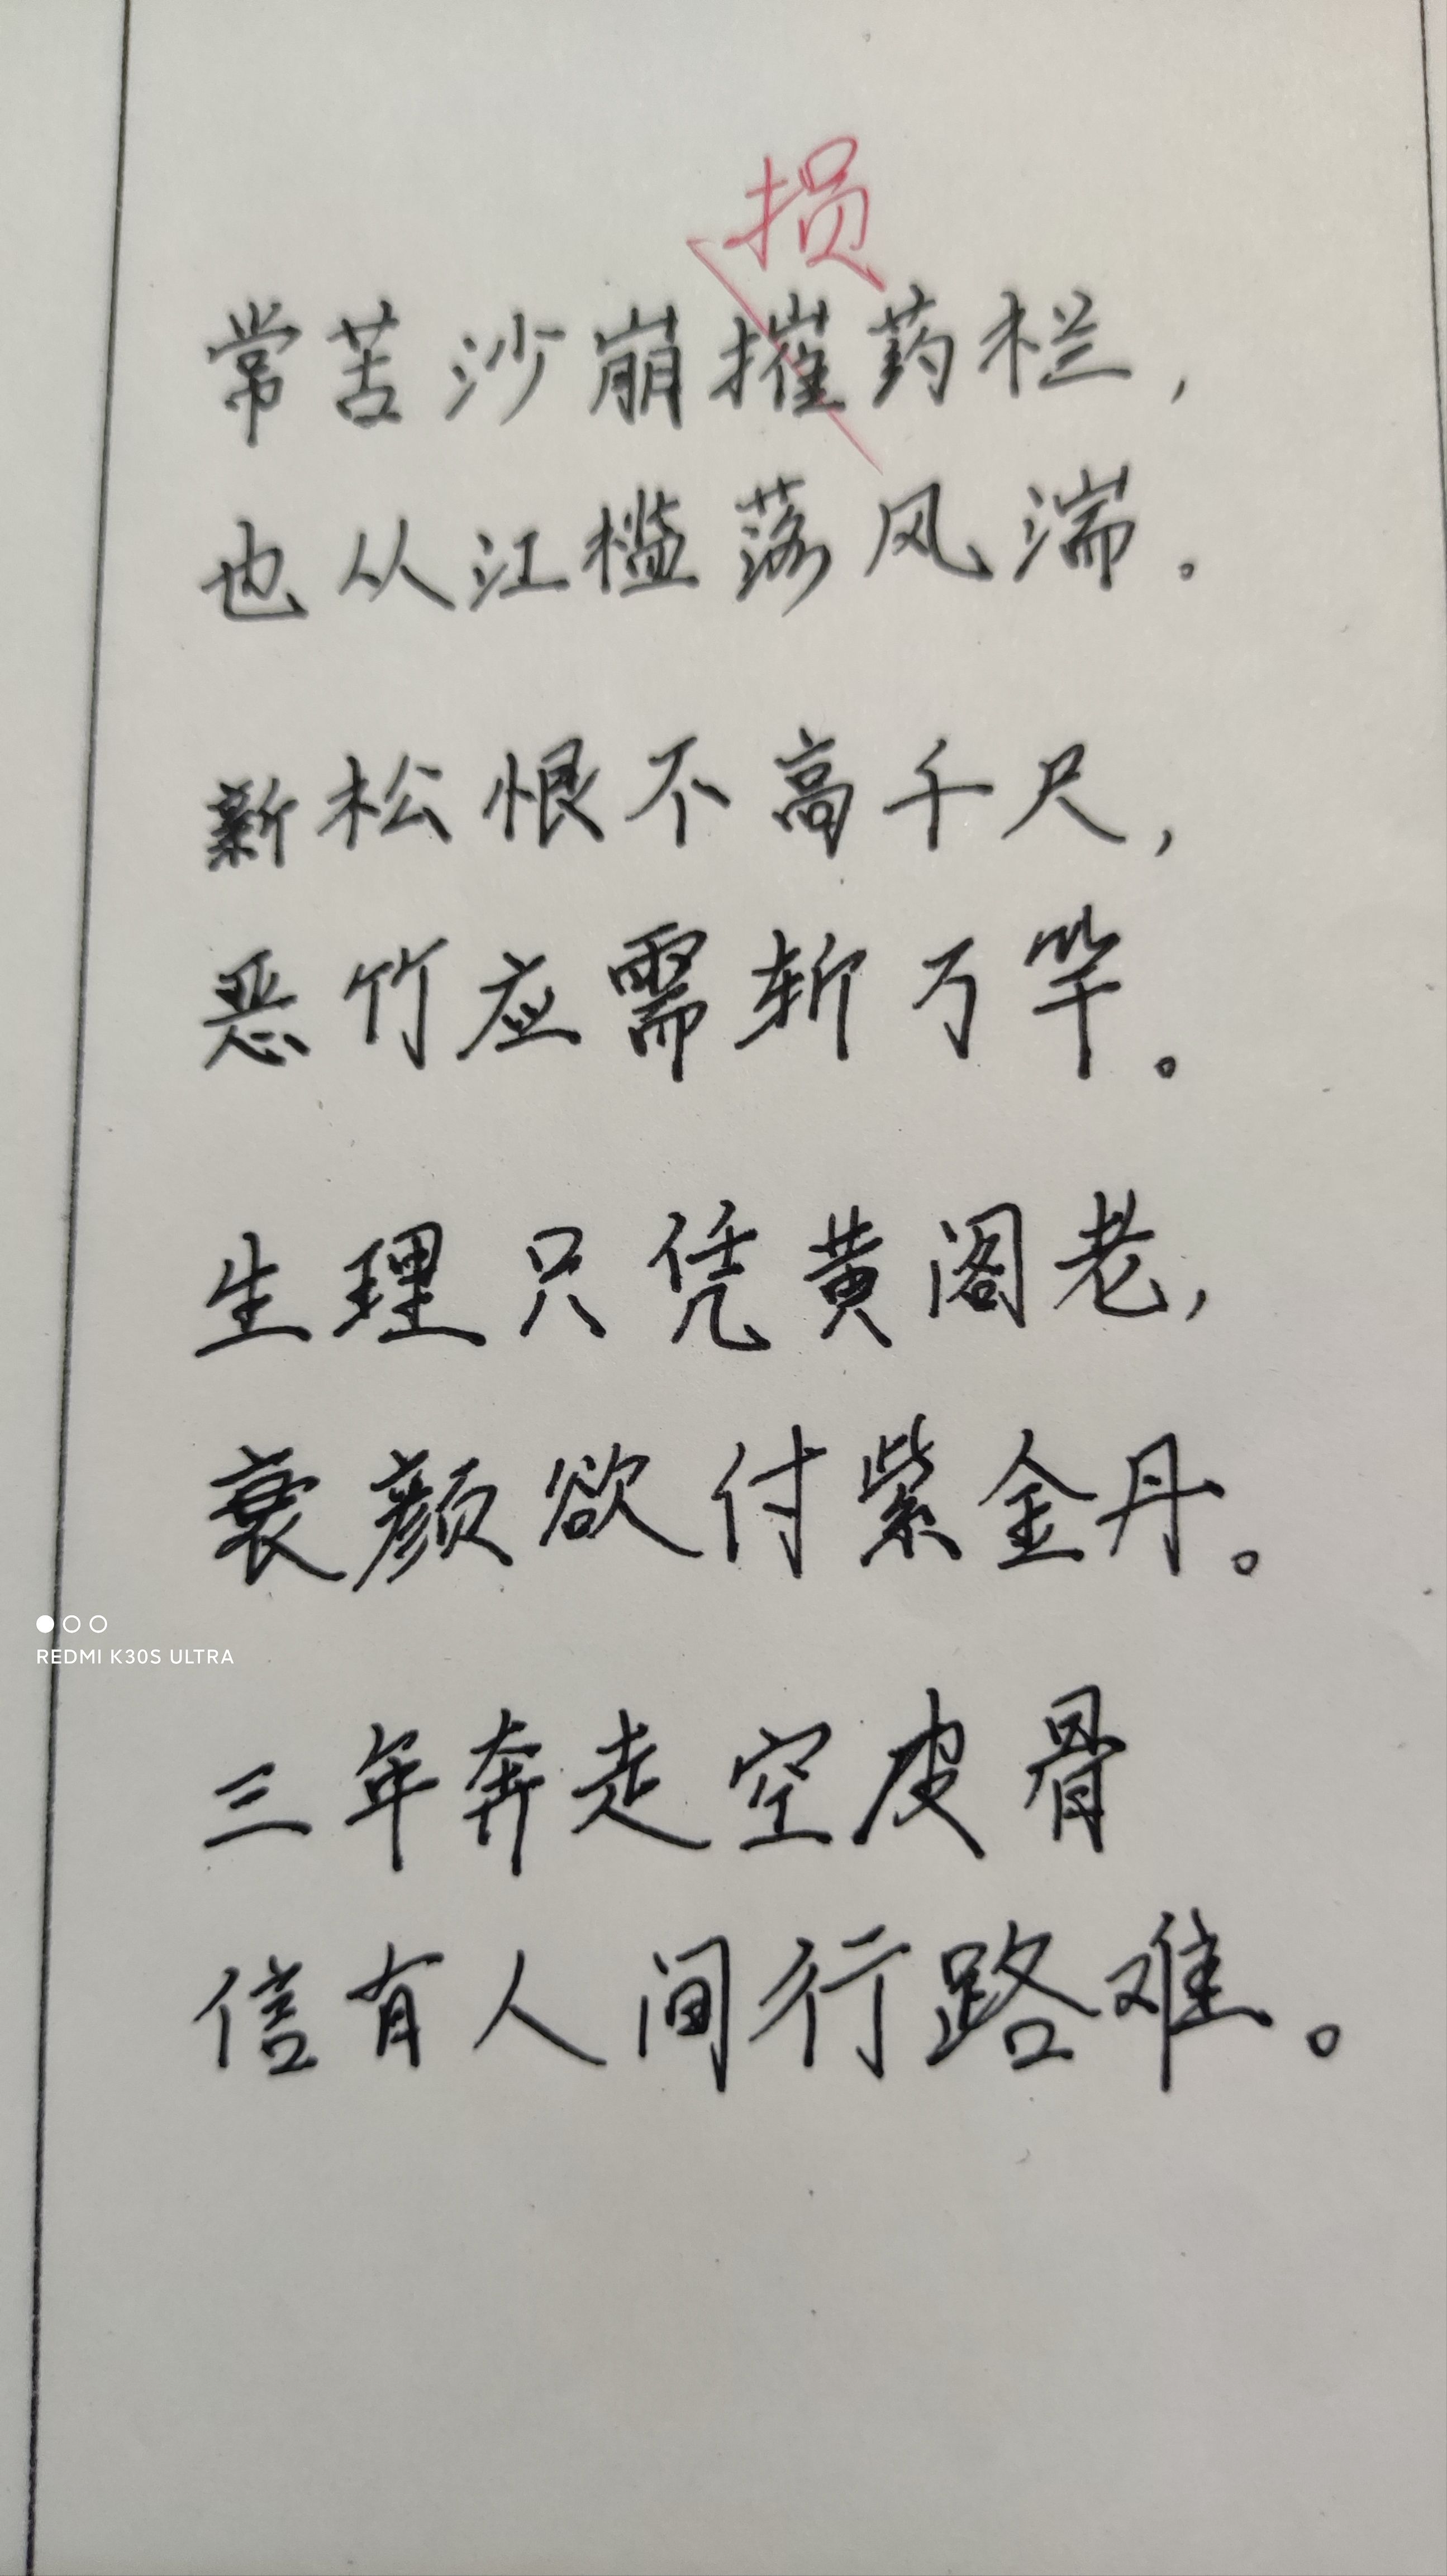 损
常苦沙崩摧药栏，
也从江槛落风湍。
新松恨不高千尺，
恶竹应需斩万竿。
生理只凭黄阁老，
衰颜欲付紫金丹。
三年奔走空皮骨
信有人间行路难。
REDMI K30S ULTRA